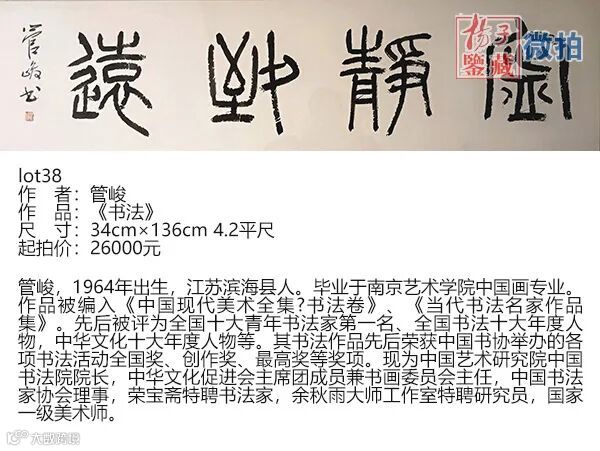 寧靜致遠
管峻书
杨子
鑒藏
微拍
lot38
作 者：管峻
作 品：《书法》
尺 寸：34cm×136cm 4.2平尺
起拍价：26000元
管峻，1964年出生，江苏滨海县人。毕业于南京艺术学院中国画专业。
作品被编入《中国现代美术全集?书法卷》、《当代书法名家作品
集》。先后被评为全国十大青年书法家第一名、全国书法十大年度人
物，中华文化十大年度人物等。其书法作品先后荣获中国书协举办的各
项书法活动全国奖、创作奖、最高奖等奖项。现为中国艺术研究院中国
书法院院长，中华文化促进会主席团成员兼书画委员会主任，中国书法
家协会理事，荣宝斋特聘书法家，余秋雨大师工作室特聘研究员，国家
一级美术师。
大欧跨境